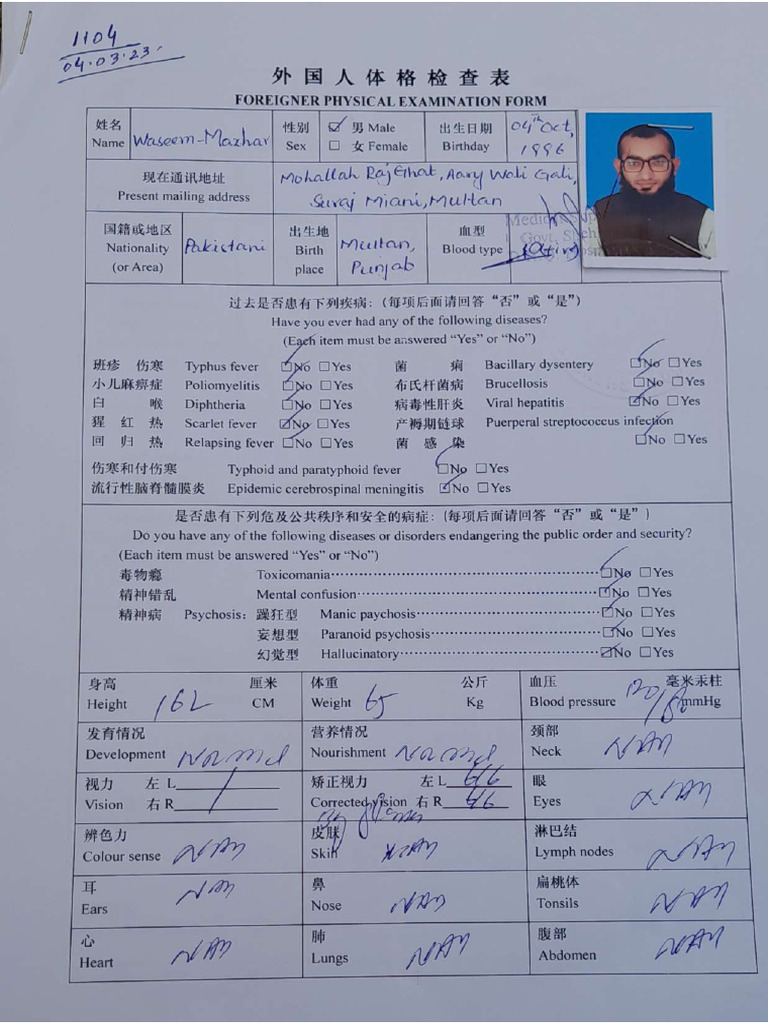 1104
04.03.23.
外国人体格检查表
FOREIGNER PHYSICAL EXAMINATION FORM
姓名 Name Waseem-Mazhar 性别 Sex ☑ 男 Male □ 女 Female 出生日期 Birthday 04th Oct, 1996
现在通讯地址 Present mailing address Mohallah Raj Ghat, Aary Wali Gali, Suraj Miani, Multan
国籍或地区 Nationality (or Area) Pakistani 出生地 Birth place Multan, Punjab 血型 Blood type
过去是否患有下列疾病:(每项后面请回答“否”或“是”)
Have you ever had any of the following diseases?
(Each item must be answered “Yes” or “No”)
班疹 伤寒 Typhus fever ☑No □Yes 菌 痢 Bacillary dysentery ☑No □Yes
小儿麻痹症 Poliomyelitis ☑No □Yes 布氏杆菌病 Brucellosis ☑No □Yes
白 喉 Diphtheria ☑No □Yes 病毒性肝炎 Viral hepatitis ☑No □Yes
猩 红 热 Scarlet fever ☑No □Yes 产褥期链球 Puerperal streptococcus infection
回 归 热 Relapsing fever ☑No □Yes 菌 感 染 ☑No □Yes
伤寒和付伤寒 Typhoid and paratyphoid fever ☑No □Yes
流行性脑脊髓膜炎 Epidemic cerebrospinal meningitis ☑No □Yes
是否患有下列危及公共秩序和安全的病症:(每项后面请回答“否”或“是”)
Do you have any of the following diseases or disorders endangering the public order and security?
(Each item must be answered “Yes” or “No”)
毒物瘾 Toxicomania ☑No □Yes
精神错乱 Mental confusion ☑No □Yes
精神病 Psychosis: 躁狂型 Manic paychosis ☑No □Yes
妄想型 Paranoid psychosis ☑No □Yes
幻觉型 Hallucinatory ☑No □Yes
身高 厘米 体重 公斤 血压 毫米汞柱
Height 162 CM Weight 65 Kg Blood pressure 120/80 mmHg
发育情况 营养情况 颈部
Development Normal Nourishment Normal Neck NAD
视力 左 L 矫正视力 左 L 6/6 眼
Vision 右 R Corrected vision 右 R 6/6 Eyes NAD
by glasses
辨色力 皮肤 淋巴结
Colour sense NAD Skin NAD Lymph nodes NAD
耳 鼻 扁桃体
Ears NAD Nose NAD Tonsils NAD
心 肺 腹部
Heart NAD Lungs NAD Abdomen NAD